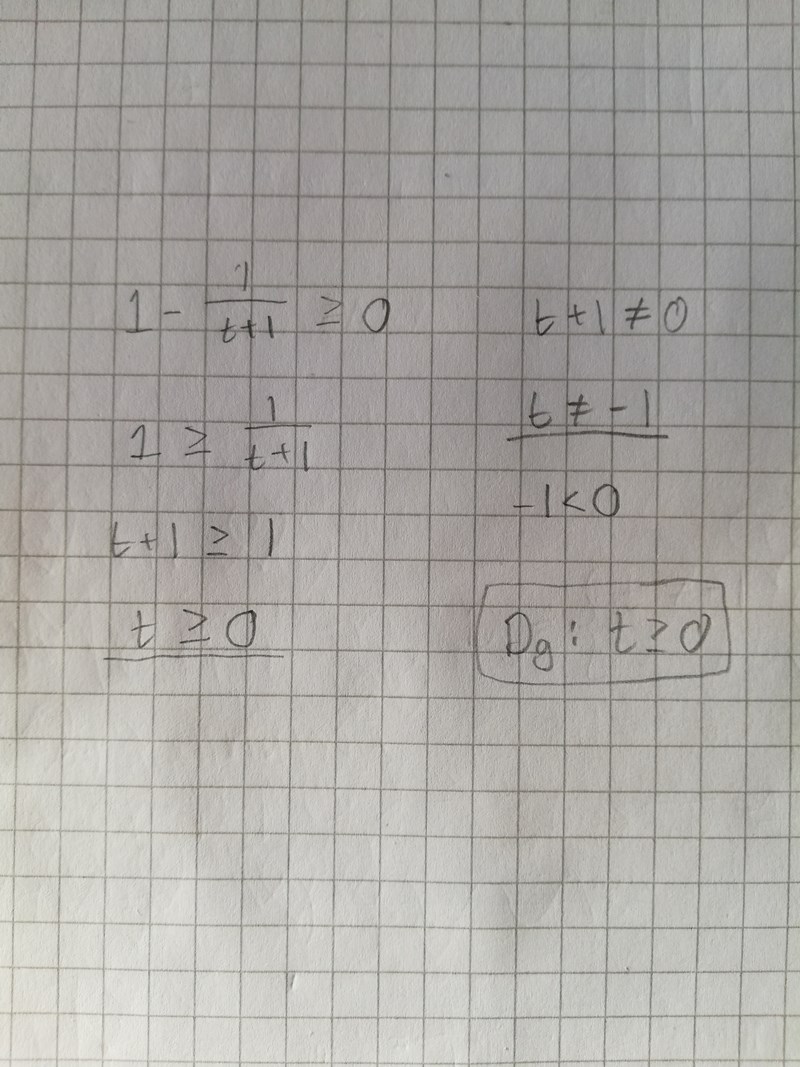 1 - 1/(t+1) ≥ 0
1 ≥ 1/(t+1)
t+1 ≥ 1
t ≥ 0
t+1 ≠ 0
t ≠ -1
-1 < 0
Dg: t ≥ 0